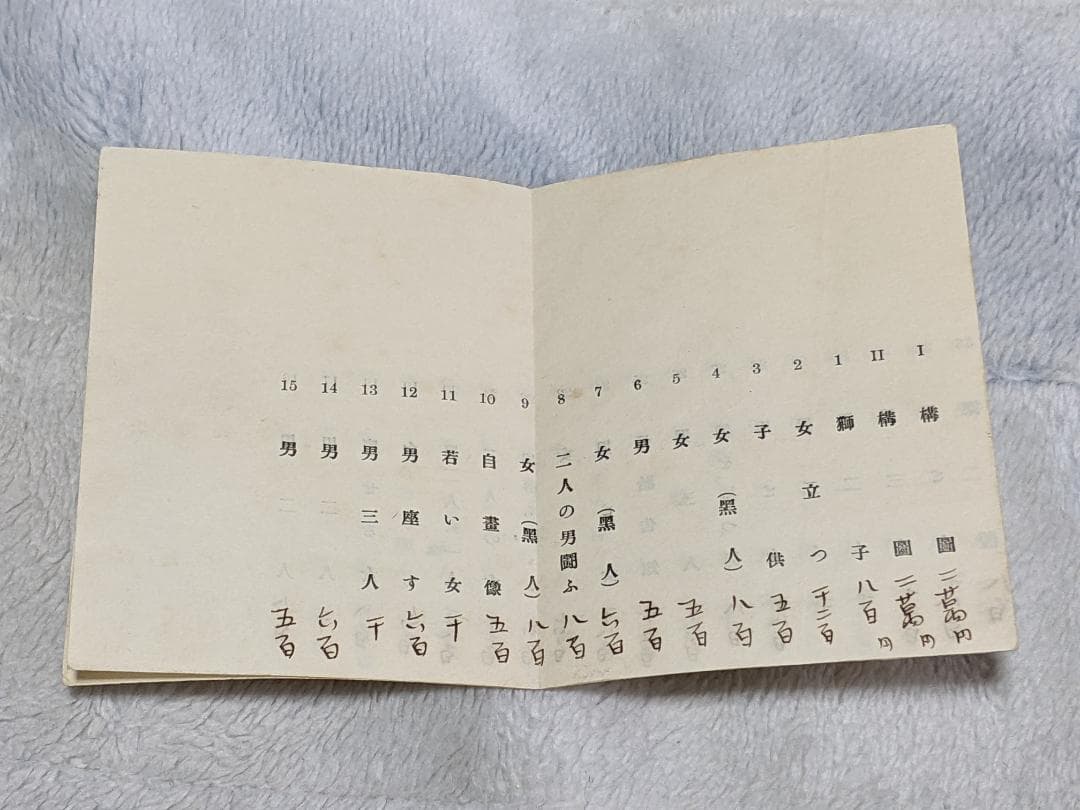 I 構圖 二萬円
II 構圖 二萬円
1 獅子 八百円
2 女立つ 千二百
3 子供 五百
4 女(黑人) 八百
5 女 五百
6 男 五百
7 女(黑人) 六百
8 二人の男闘ふ 八百
9 女(黑人) 八百
10 自畫像 五百
11 若い女 千
12 男座す 六百
13 男三人 千
14 男 六百
15 男 五百